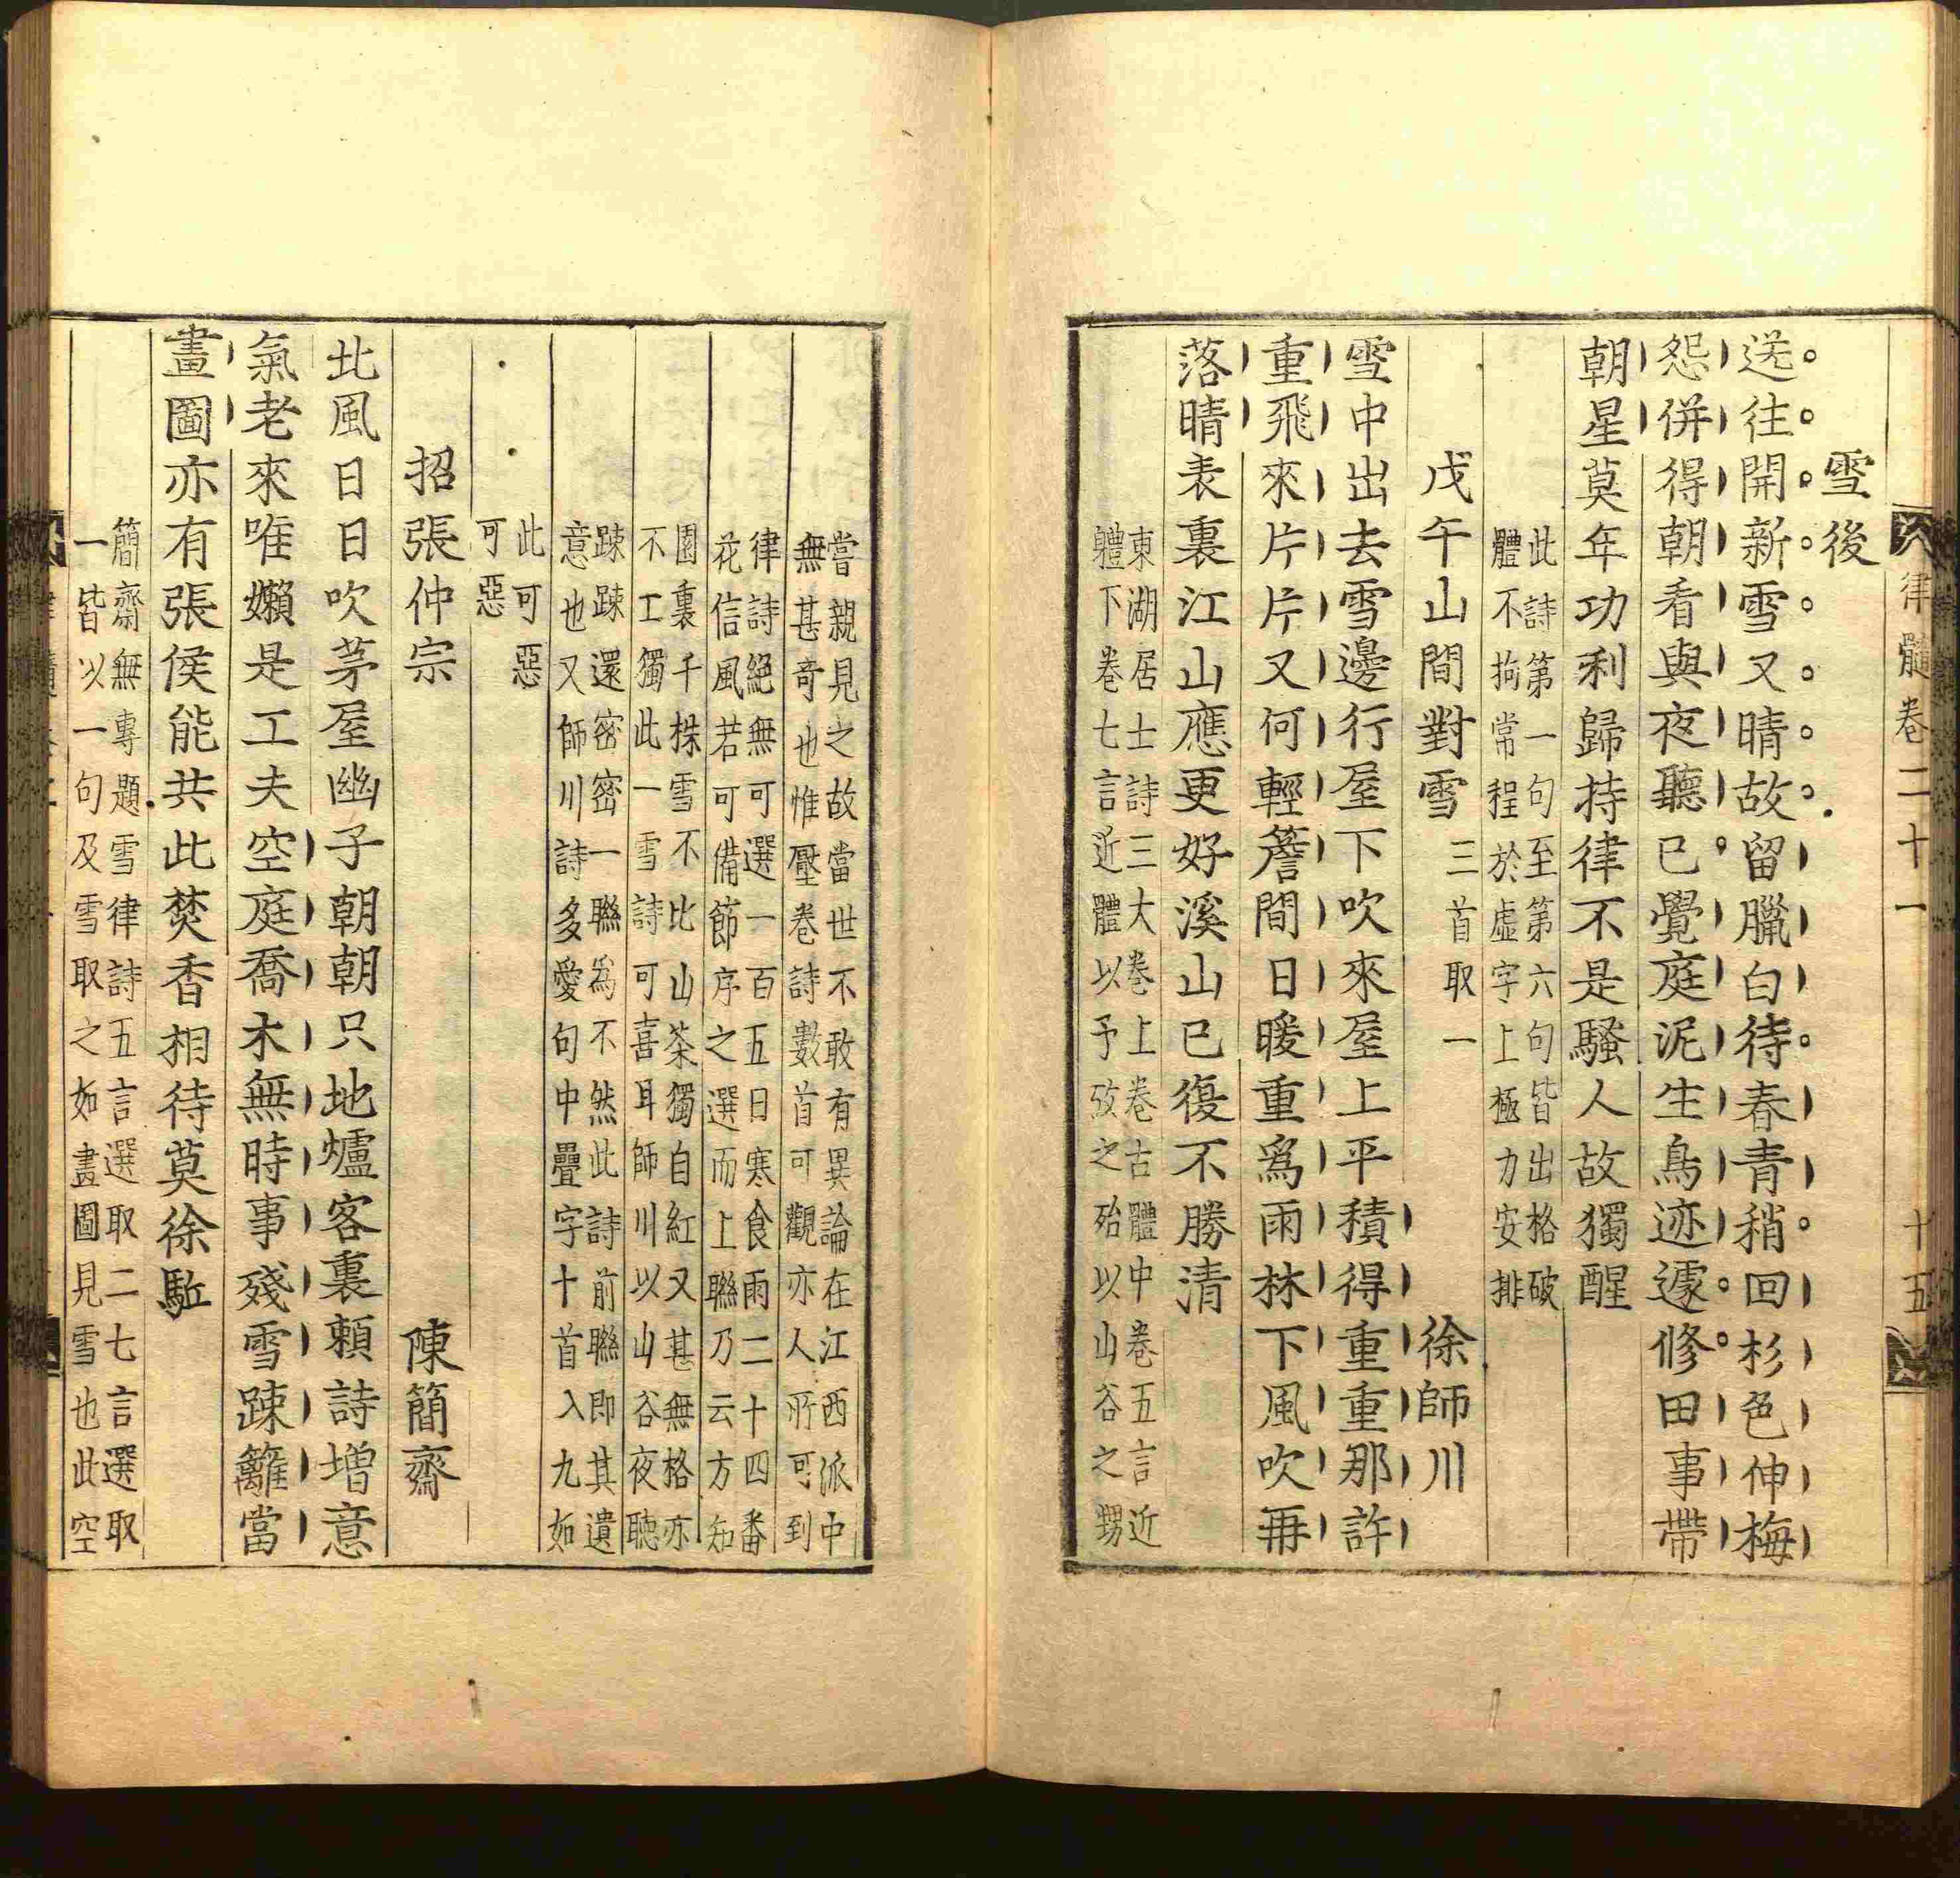 律髓卷二十一　十五
雪後
送往開新雪又晴故留臘白待春青稍回杉色伸梅
怨併得朝看與夜聽已覺庭泥生鳥迹遽修田事帶
朝星莫年功利歸持律不是騷人故獨醒
此詩第一句至第六句皆出格破
體不拘常程於虛字上極力安排
戊午山間對雪三首取一　徐師川
雪中出去雪邊行屋下吹來屋上平積得重重那許
重飛來片片又何輕簷間日暖重爲雨林下風吹再
落晴表裏江山應更好溪山已復不勝清
東湖居士詩三大卷上卷古體中卷五言近
體下卷七言近體以予攷之殆以山谷之甥
嘗親見之故當世不敢有異論在江西派中
無甚奇也惟壓卷詩數首可觀亦人所可到
律詩絕無可選一百五日寒食雨二十四番
花信風若可備節序之選而上聯乃云方知
園裏千株雪不比山茶獨自紅又甚無格亦
不工獨此一雪詩可喜耳師川以山谷夜聽
踈踈還密密一聯爲不然此詩前聯即其遺
意也又師川詩多愛句中疊字十首入九如
此可惡
可惡
招張仲宗　陳簡齋
北風日日吹茅屋幽子朝朝只地爐客裏賴詩增意
氣老來唯嬾是工夫空庭喬木無時事殘雪踈籬當
畫圖亦有張侯能共此焚香相待莫徐驅
簡齋無專題雪律詩五言選取二七言選取
一皆以一句及雪取之如畫圖見雪也此空